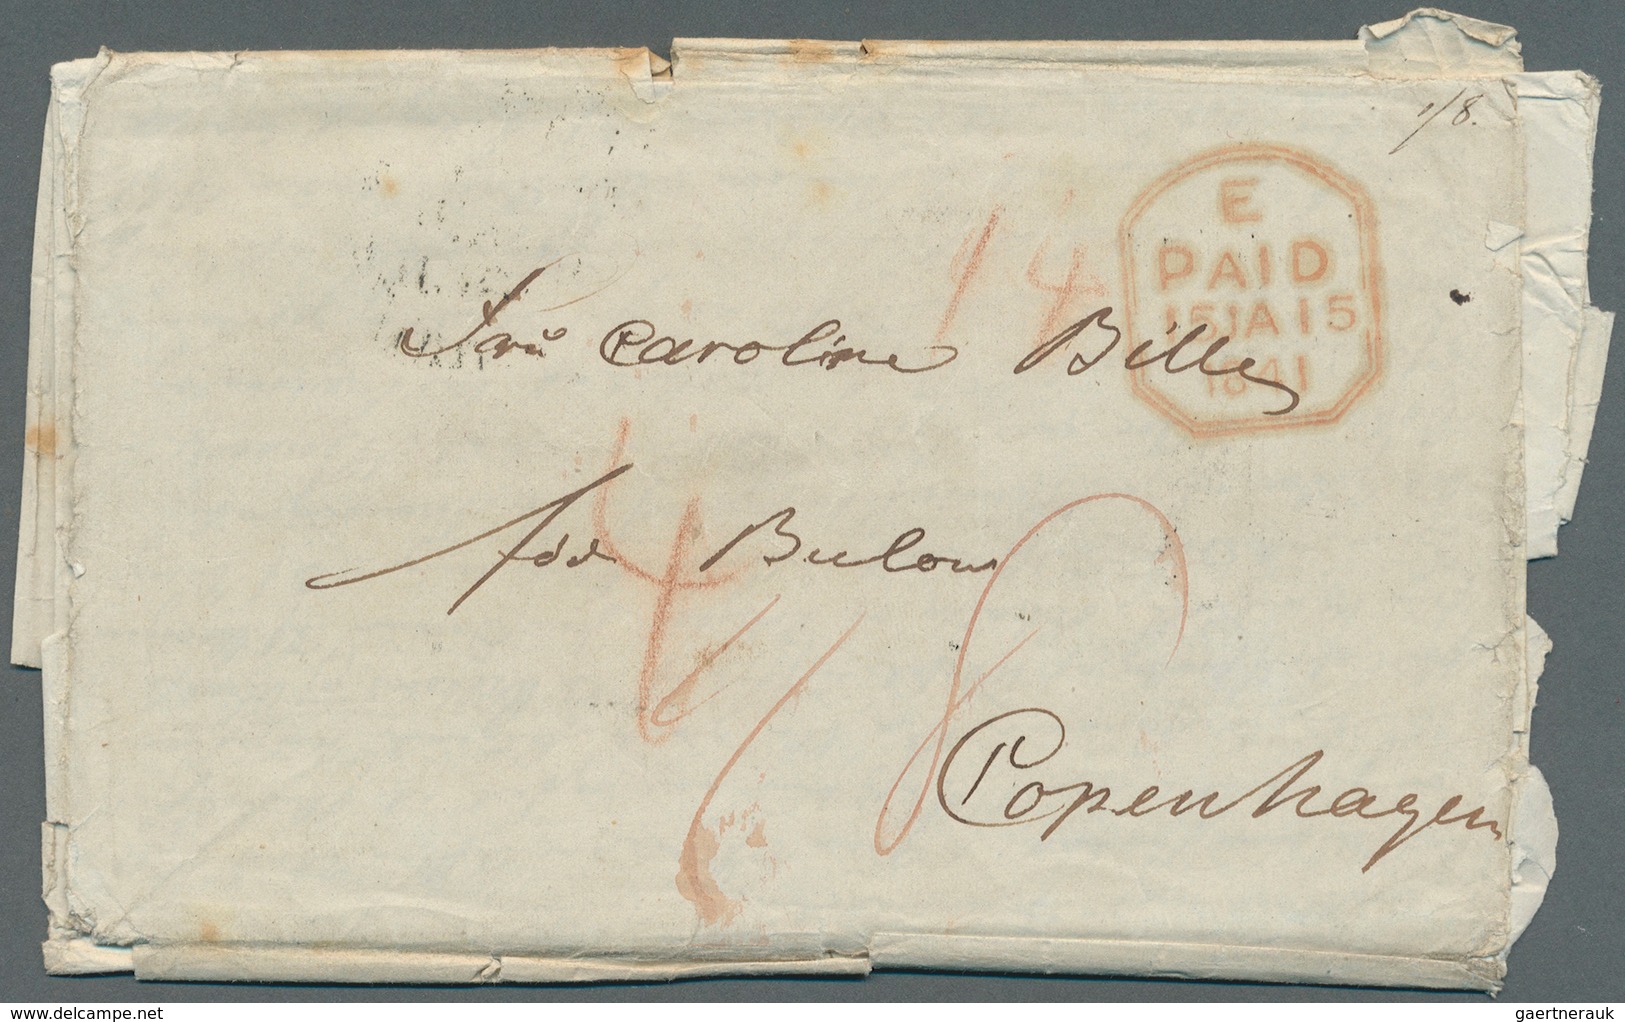 1/8.
E
PAID
15 JA 15
1841
14
Frū Caroline Bille
född Bulow
Copenhagen
www.delcampe.net
gaertnerauk